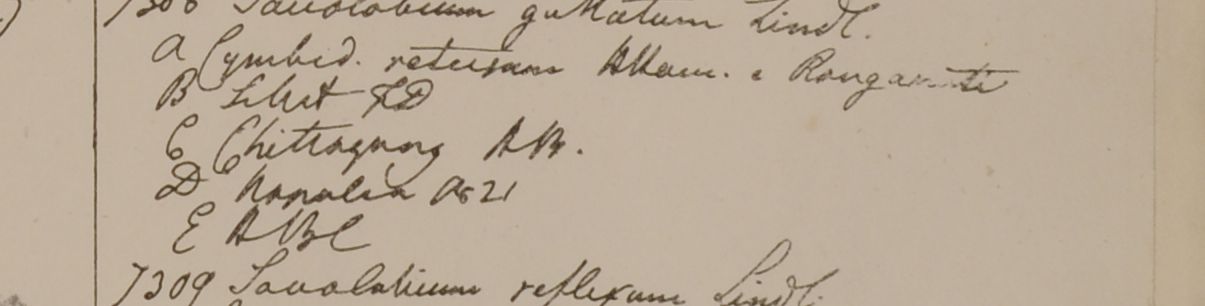 7308 Saccolobium guttatum Lindl.
A Cymbid. retusum HHam. e Rongamati
B Silhet FD
C Chittagong HBr.
D Napalia 1821
E HBC
7309 Saccolabium reflexum Lindl.